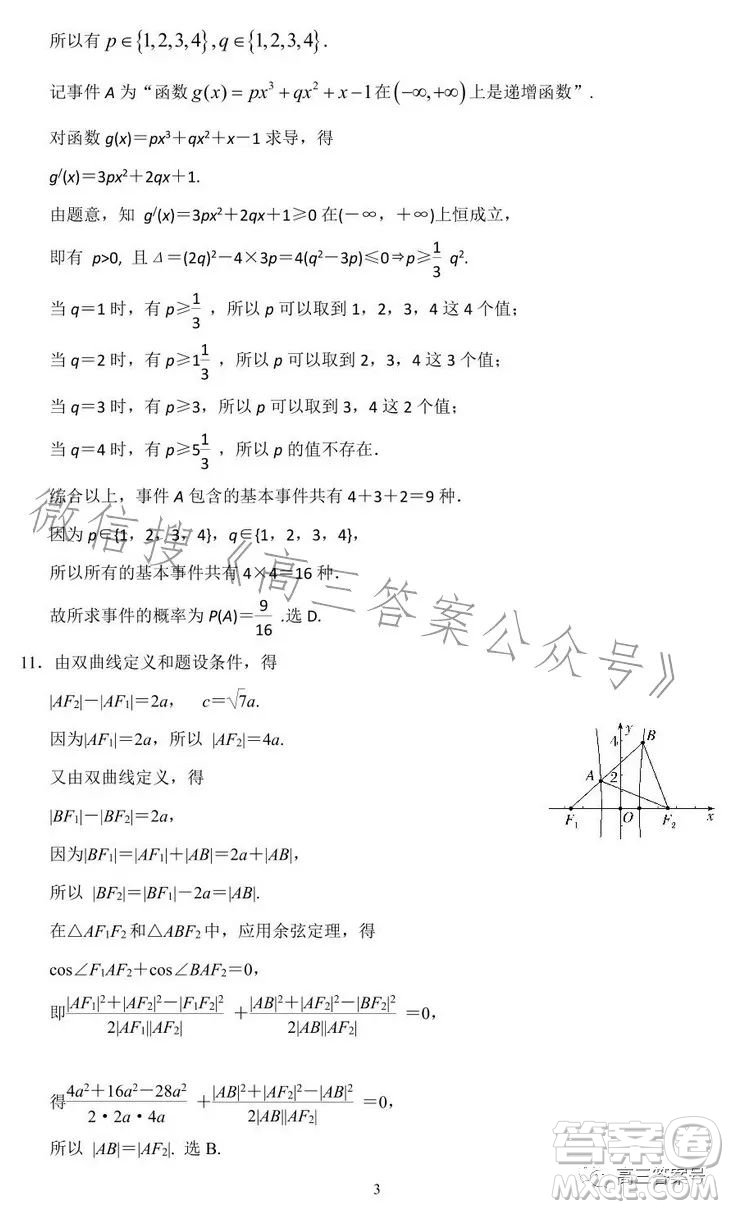 所以有 p∈{1,2,3,4},q∈{1,2,3,4}.
记事件 A 为“函数 g(x)=px³+qx²+x−1 在(−∞,+∞)上是递增函数”.
对函数 g(x)=px³+qx²+x−1 求导，得
g′(x)=3px²+2qx+1.
由题意，知 g′(x)=3px²+2qx+1≥0 在(−∞，+∞)上恒成立，
即有 p>0, 且 Δ=(2q)²−4×3p=4(q²−3p)≤0⇒p≥1/3 q².
当 q=1 时，有 p≥1/3 ，所以 p 可以取到 1，2，3，4 这 4 个值；
当 q=2 时，有 p≥1 1/3 ，所以 p 可以取到 2，3，4 这 3 个值；
当 q=3 时，有 p≥3，所以 p 可以取到 3，4 这 2 个值；
当 q=4 时，有 p≥5 1/3 ，所以 p 的值不存在.
综合以上，事件 A 包含的基本事件共有 4+3+2=9 种.
因为 p∈{1，2，3，4}，q∈{1，2，3，4}，
所以所有的基本事件共有 4×4=16 种.
故所求事件的概率为 P(A)=9/16 .选 D.
11．由双曲线定义和题设条件，得
|AF₂|−|AF₁|=2a， c=√7a.
因为|AF₁|=2a，所以 |AF₂|=4a.
又由双曲线定义，得
|BF₁|−|BF₂|=2a，
因为|BF₁|=|AF₁|+|AB|=2a+|AB|,
所以 |BF₂|=|BF₁|−2a=|AB|.
在△AF₁F₂ 和△ABF₂ 中，应用余弦定理，得
cos∠F₁AF₂+cos∠BAF₂=0,
即 (|AF₁|²+|AF₂|²−|F₁F₂|²)/(2|AF₁||AF₂|) + (|AB|²+|AF₂|²−|BF₂|²)/(2|AB||AF₂|) =0,
得 (4a²+16a²−28a²)/(2·2a·4a) + (|AB|²+|AF₂|²−|AB|²)/(2|AB||AF₂|) =0,
所以 |AB|=|AF₂|. 选 B.
y
4
B
A
2
F₁
O
F₂
x
微信搜《高三答案公众号》
答案圈
高三答案号
MXQE.COM
3